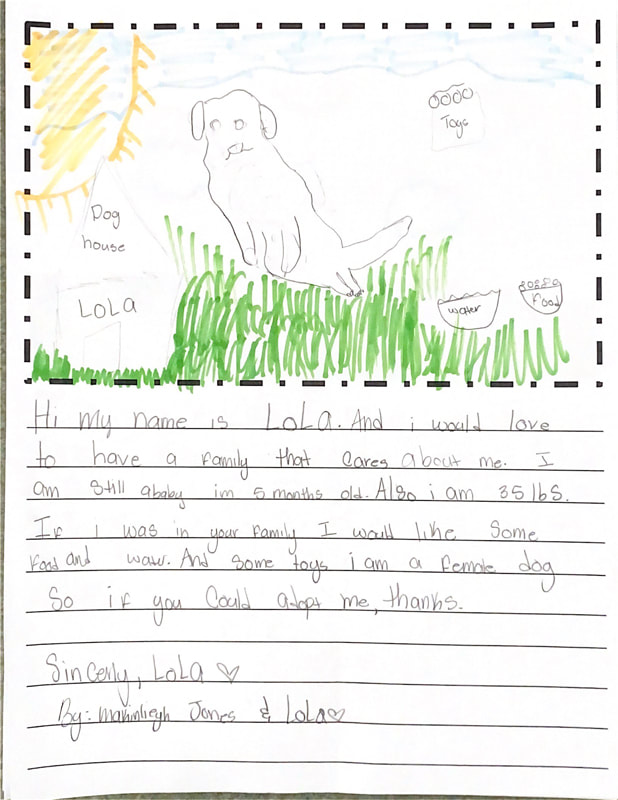 Toys
Dog
house
LoLa
water
Food
Hi my name is LoLa. And i would love
to have a family that cares about me. I
am still a baby im 5 months old. Also i am 35 lbs.
If i was in your family I would like some
food and water. And some toys i am a female dog
So if you could adopt me, thanks.
Sincerly, LoLa ♡
By: Jones & LoLa♡